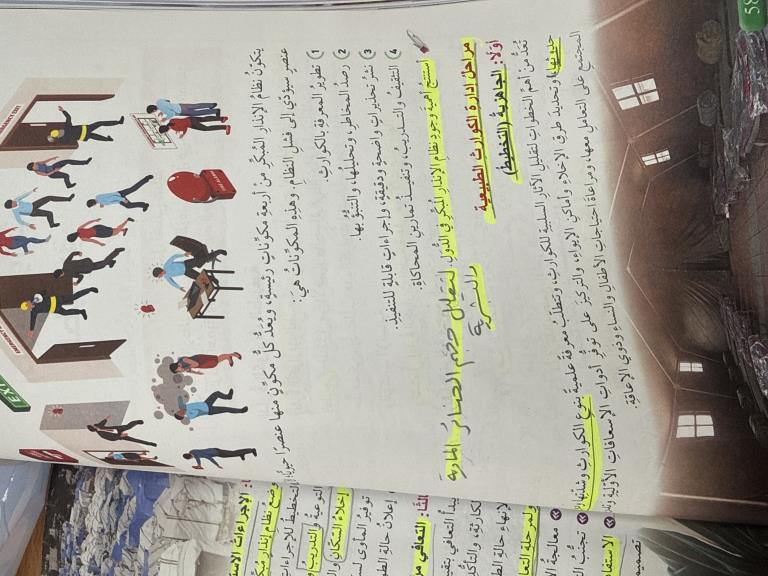 يتكوّنُ نظامُ الإنذارِ المُبكّرِ من أربعةِ مكوّناتٍ رئيسيةٍ، ويُعَدُّ كلُّ مكوّنٍ منها عنصرًا حيويًّا
عنصرٍ سيؤدّي إلى فشلِ النظامِ. وهذه المكوّناتُ هيَ:
1 تطويرُ المعرفةِ بالكوارثِ.
2 رصدُ المخاطرِ، وتحليلُها، والتنبؤُ بها.
3 نشرُ تحذيراتٍ واضحةٍ ودقيقةٍ، وإجراءاتٍ قابلةٍ للتنفيذِ.
4 التثقيفُ والتدريبُ، وتنفيذُ تمارينِ المحاكاةِ.
أستنتجُ أهميةَ وجودِ نظامِ الإنذارِ المُبكّرِ في الدولِ. لتقليل حجم الخسائر المادية
والبشرية
مراحل إدارة الكوارث الطبيعية
أوّلًا: الجاهزية (التخطيط)
تُعَدُّ من أهمِّ الخطواتِ لتقليلِ الآثارِ السلبيةِ للكوارثِ، وتتطلّبُ معرفةً علميةً بنوعِ الكوارثِ وشدّتِها
حدوثِها، وتحديدَ طرقِ الإخلاءِ وأماكنِ الإيواءِ، والتركيزَ على توفّرِ أدواتِ الإسعافاتِ الأوّليةِ
المجتمعِ على التعاملِ معها، ومراعاةَ احتياجاتِ الأطفالِ والنساءِ وذوي الإعاقةِ.
EXIT
58
وضعُ نظامِ إنذارٍ
التخطيطُ للإجراءاتِ
التوعيةُ والتدريبُ
إخلاءُ السكانِ
توفيرُ المأوى
إعلانُ حالةِ
التعافي
معالجةُ
تجنّبُ
تصميم